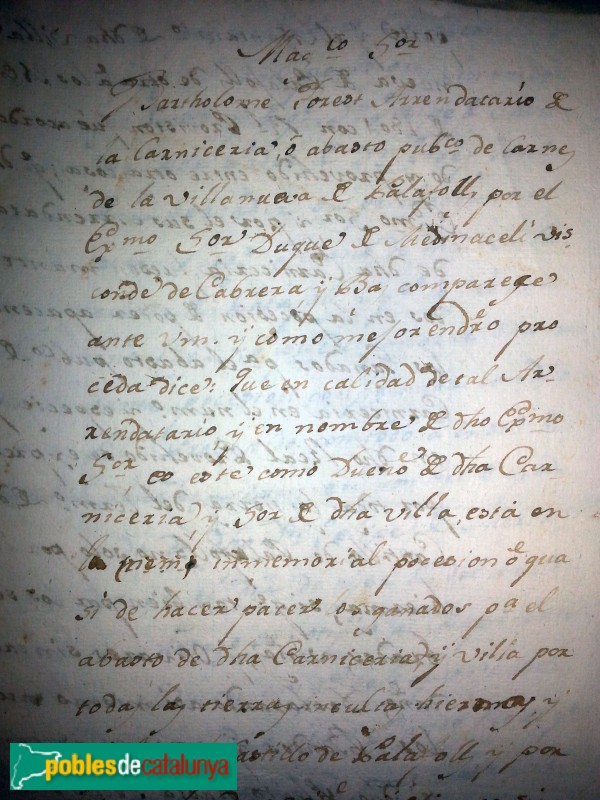 Mag.co Sor
Bartholome Forest Arrendatario de
la Carniceria, o abasto pub.co de Carnes
de la Villanueva de Palafolls por el
Ex.mo Sor Duque de Medinaceli Vis=
conde de Cabrera y Bas comparege
ante Vm. y como mejor en dro pro
ceda dice: Que en calidad de tal Ar=
rendatario y en nombre de dho Ex.mo
Sor es este como Dueño de dha Car=
niceria, y Sor de dha Villa, está en
la inmemorial pocesion o qua
si de hacer pacer los ganados pa el
abasto de dha Carniceria, y Villa por
toda las tierras incultas hiermas y
Castillo de Palafolls y por
poblesdecatalunya